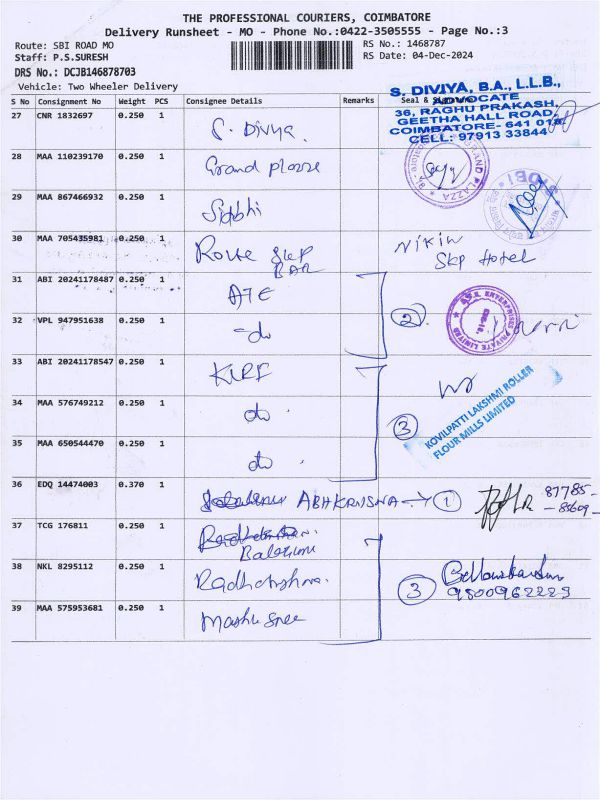 THE PROFESSIONAL COURIERS, COIMBATORE
Delivery Runsheet - MO - Phone No.:0422-3505555 - Page No.:3
Route: SBI ROAD MO
RS No.: 1468787
Staff: P.S.SURESH
RS Date: 04-Dec-2024
DRS No.: DCJB146878703
Vehicle: Two Wheeler Delivery
S. DIVJYA, B.A., L.L.B.,
ADVOCATE
36, RAGHU PRAKASH,
GEETHA HALL ROAD,
COIMBATORE- 641 018.
CELL: 97913 33844
S No Consignment No Weight PCS Consignee Details Remarks Seal &
27 CNR 1832697 0.250 1 S. Divya
28 MAA 110239170 0.250 1 Grand plazze
29 MAA 867466932 0.250 1 Sidbhi
30 MAA 705435981 0.250 1 Skp BAR
Skp Hotel
31 ABI 20241178487 0.250 1 ATE
32 VPL 947951638 0.250 1 - do
2
33 ABI 20241178547 0.250 1 KLRF
34 MAA 576749212 0.250 1 do
35 MAA 650544470 0.250 1 do
3
KOVILPATTI LAKSHMI ROLLER
FLOUR MILLS LIMITED
36 EDQ 14474003 0.370 1 ABHKRNSNA → 1
37 TCG 176811 0.250 1
38 NKL 8295112 0.250 1 Radhakrishna
3
9500962223
39 MAA 575953681 0.250 1 Mashu Sree